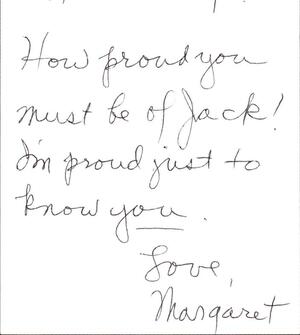 How proud you
must be of Jack!
I'm proud just to
know you.
Love,
Margaret